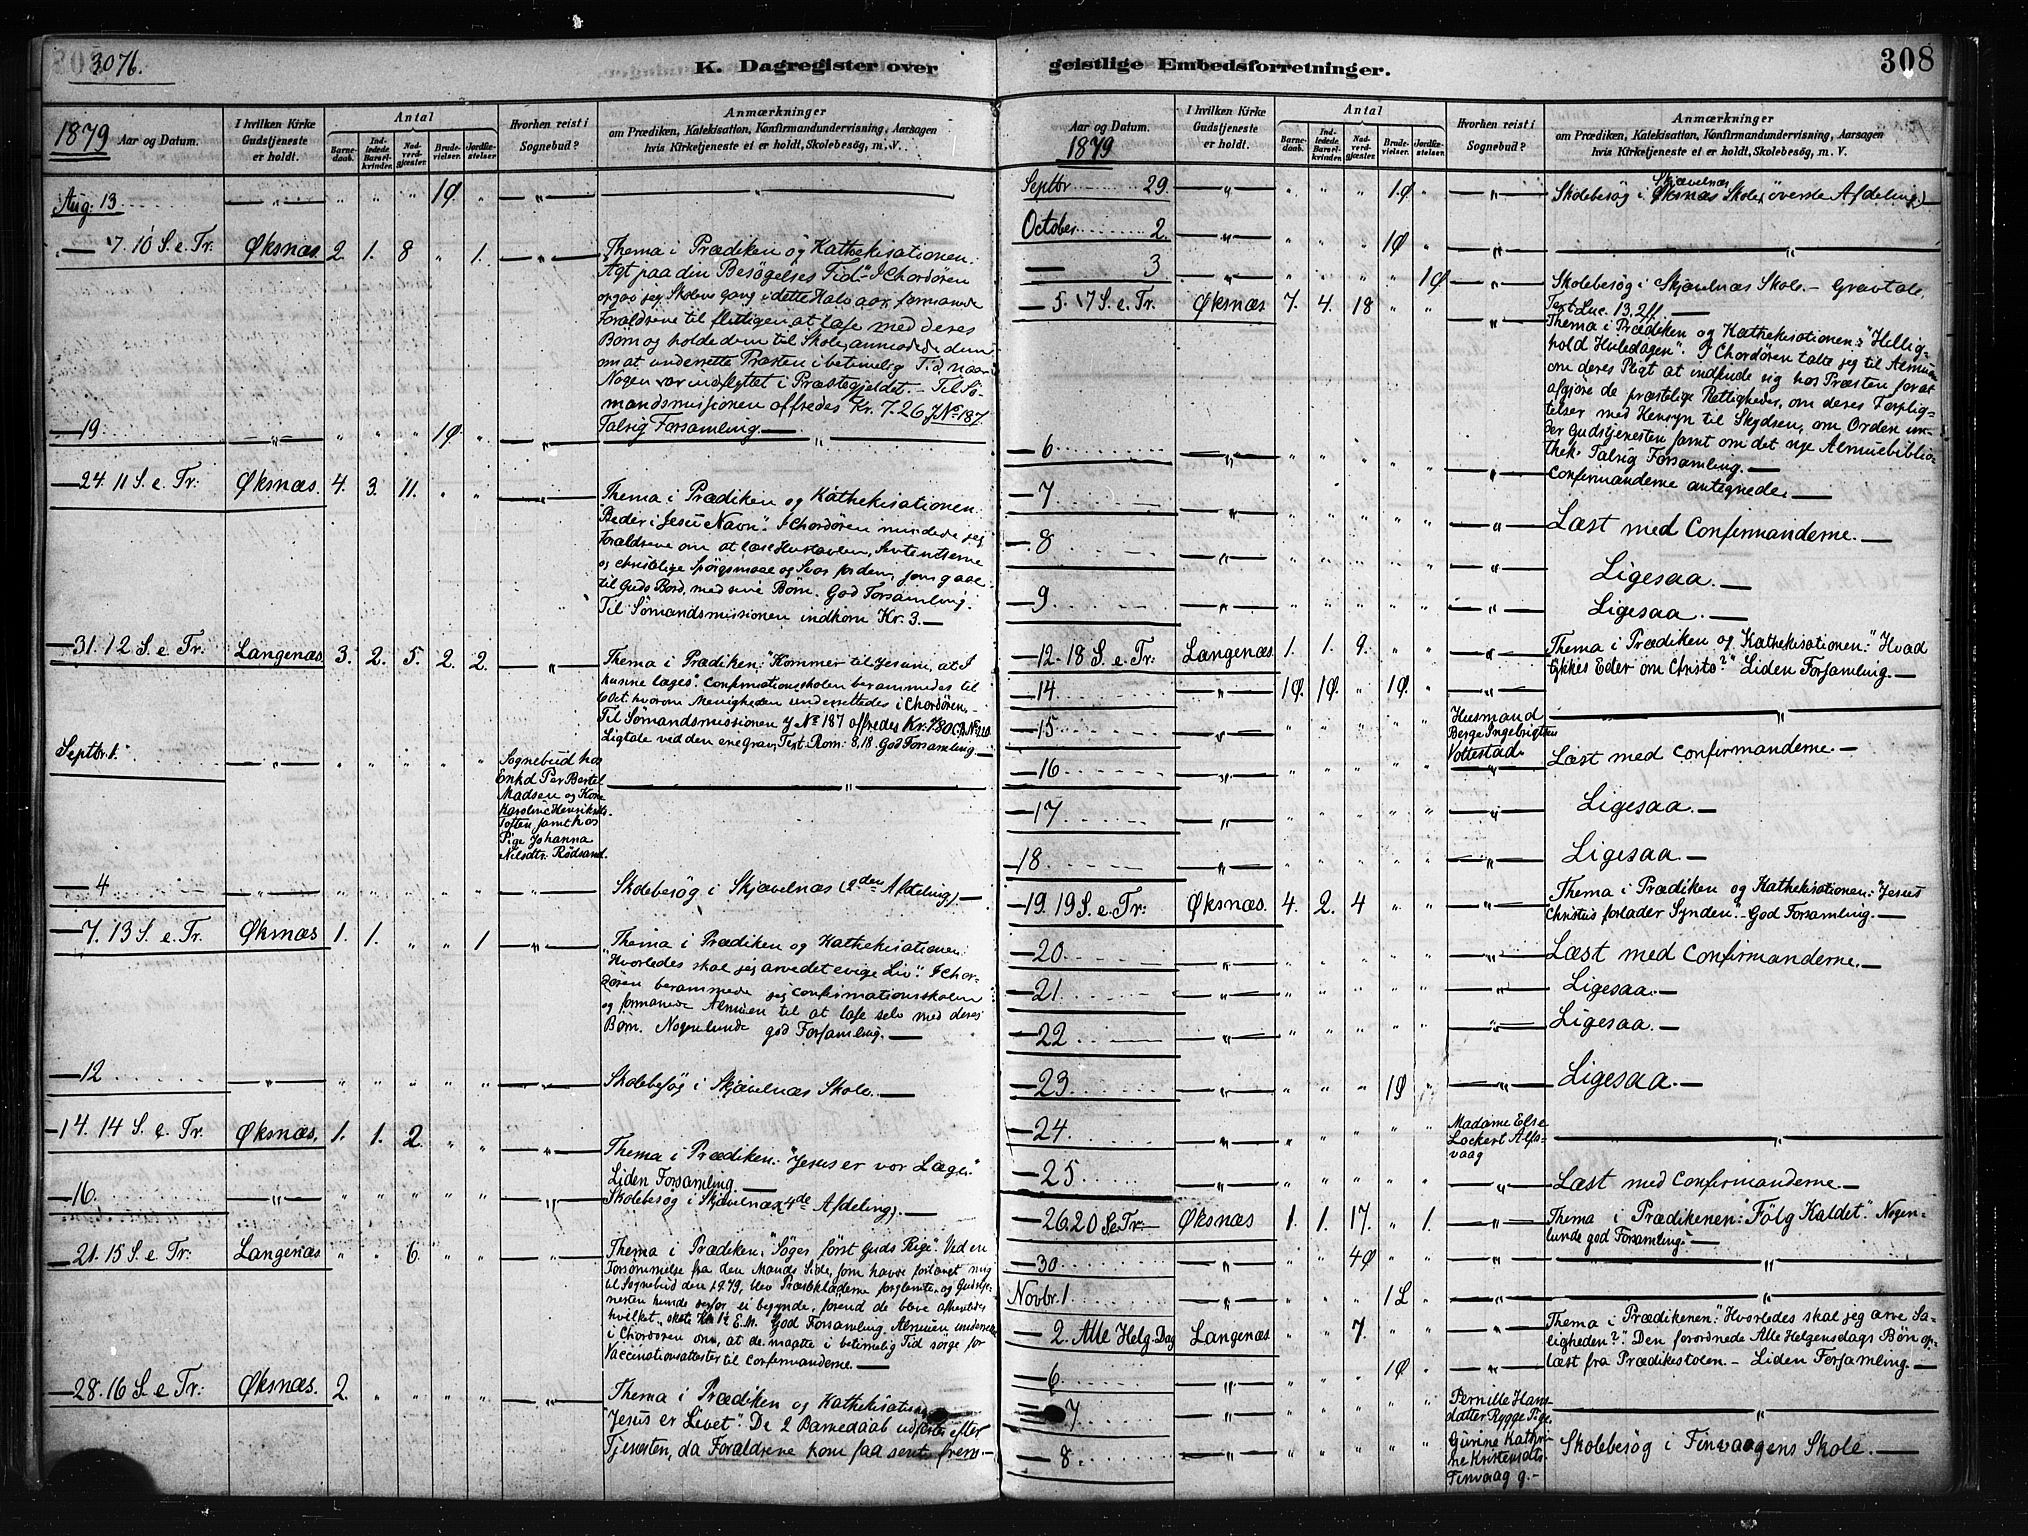 307b.
K. Dagregister over
1879 Aar og Datum.
I hvilken Kirke Gudstjeneste er holdt.
Antal
Barnedaab.
Indledede Barselkvinder.
Nadverdgjæster.
Brudevielser.
Jordfæstelser.
Hvorhen reist i Sognebud?
Anmærkninger
om Prædiken, Katekisation, Konfirmandundervisning, Aarsagen
hvis Kirketjeneste ei er holdt, Skolebesøg, m. V.
Aug: 13 " " " " 1Ø " " "
— 17. 10 S. e. Tr. Øksnæs 2. 1. 8 " 1. " Thema i Prædiken og Kathekisationen:
"Agt paa din Besøgelses Tid". I Chordören
opgav jeg Skolens gang i dette Halvaar, formanede
Forældrene til flittigen at læse med deres
Børn og holde dem til Skole, anmodede dem
om at underrette Præsten i betimelig Tid, naar
Nogen var indflyttet i Præstegjeldet. Til Sö-
mandsmissionen offredes Kr. 7.26 J No 187.
Talrig Forsamling. —
— 19 " " " " 1Ø " " "
— 24. 11 S. e. Tr: Øksnæs. 4. 3. 11. " " " Thema i Prædiken og Kathekisationen:
"Beder i Jesu Navn". I Chordören mindede jeg
Forældrene om at læse Hustavlen, Sententserne
og christelige Spörgsmaal og Svar for dem, som gaae
til Guds Bord, med sine Børn. God Forsamling.
Til Sömandsmissionen indkom Kr. 3. —
— 31. 12 S. e. Tr. Langenæs 3. 2. 5. 2. 2. " Thema i Prædiken: "Kommer til Jesum, at I
kunne læges". Confirmationsskolen berammedes til
hvorom Menigheden underrettedes i Chordören.
Til Sömandsmissionen J No 187 offredes Kr.
Ligtale ved den ene Grav, Text: Rom: 8, 18. God Forsamling. —
Septbr. 1. " " " " " "
Sognebud hos
Enkd Per Bertel
Madsen og Kone
Karoline Henriksdtr.
Toften samt hos
Pige Johanna
Nilsdtr. Rödsand.
"
— 4 " " " " " " " Skolebesøg i Skjævelnæs (2den Afdeling). —
— 7. 13 S. e. Tr. Øksnæs 1. 1. " " 1 " Thema i Prædiken og Kathekisationen:
"Hvorledes skal jeg arve det evige Liv". I Chor-
dören berammede jeg Confirmationsskolen
og formanede Almuen til at læse selv med deres
Børn. Nogenlunde god Forsamling. —
— 12 " " " " " " " Skolebesøg i Skjævelnæs Skole. —
— 14. 14 S. e. Tr. Øksnæs. 1. 1. 2. " " " Thema i Prædiken: "Jesus er vor Læge."
Liden Forsamling —
— 16. " " " " " " " Skolebesøg i Skjævelnæs (4de Afdeling). —
— 21. 15 S. e. Tr: Langenæs " " 6. " " " Thema i Prædiken: "Söger först Guds Rige". Ved en
Forsömmelse fra den Mands Side, som havde forlanget mig
til Sognebud den 1.9.79, blev Præsteklæderne forglemte, og Gudstje-
nesten kunde derfor ei begynde, förend de bleve afhentede,
hvilket skete Kl. 1½ E.M. God Forsamling. Almuen underrettedes
i Chordören om, at de maatte i betimelig Tid sørge for
Vaccinationsattester til Confirmanderne. —
— 28. 16 S. e. Tr: Øksnæs. 2. " " " " " Thema i Prædiken og Kathekisationen
"Jesus er Livet". De 2 Barnedaab udførtes efter
Tjenesten, da Forældrene kom saa sent frem. —
308
geistlige Embedsforretninger.
Aar og Datum.
1879
I hvilken Kirke Gudstjeneste er holdt.
Antal
Barnedaab.
Indledede Barselkvinder.
Nadverdgjæster.
Brudevielser.
Jordfæstelser.
Hvorhen reist i Sognebud?
Anmærkninger
om Prædiken, Katekisation, Konfirmandundervisning, Aarsagen
hvis Kirketjeneste ei er holdt, Skolebesøg, m. V.
Septbr 29. " " " " 1Ø " " Skolebesøg i Skjævelnæs Skole (överste Afdeling) —
October 2. " " " " 1Ø " " "
— 3 " " " " " 1Ø " Skolebesøg i Skjævelnæs Skole. — Gravtale,
Text Luc. 13. 2ff. —
— 5. 17 S. e. Tr. Øksnæs 7. 4. 18 " " " Thema i Prædiken og Kathekisationen: "Hellig-
hold Hviledagen". I Chordören talte jeg til Almuen
om deres Pligt at indfinde sig hos Præsten for at
afgjöre de præstelige Rettigheder, om deres Forplig-
telser med Hensyn til Skydsen, om Orden un-
der Gudstjenesten samt om det nye Almuebiblio-
thek. Talrig Forsamling. —
— 6 " " " " " " " Confirmanderne antegnede. —
— 7 " " " " " " " Læst med Confirmanderne. —
— 8 " " " " " " " Ligesaa. —
— 9 " " " " " " " Ligesaa. —
— 12. 18 S. e. Tr: Langenæs 1. 1. 9. " " " Thema i Prædiken og Kathekisationen: "Hvad
tykkes Eder om Christo?" Liden Forsamling. —
— 14 " 1Ø. 1Ø. " 1Ø. " " "
— 15 " " " " " "
Husmand
Berge Ingebrigtsen
Vottestad.
Læst med Confirmanderne. —
— 16 " " " " " " "
— 17 " " " " " " " Ligesaa. —
— 18. " " " " " " " Ligesaa. —
— 19. 19 S. e. Tr: Øksnæs. 4. 2. 4 " " " Thema i Prædiken og Kathekisationen: "Jesus
Christus forlader Synden". God Forsamling. —
— 20 " " " " " " " Læst med Confirmanderne. —
— 21. " " " " " " " Ligesaa. —
— 22 " " " " " " " Ligesaa. —
— 23 " " " " 1Ø " " Ligesaa. —
— 24. " " " " " "
Madame Else
Lockert Alfs-
vaag
"
— 25 " " " " " " " Læst med Confirmanderne —
— 26. 20 S. e Tr: Øksnæs 1. 1. 17. " 1. " Thema i Prædikenen: "Fölg Kaldet". Nogen-
lunde god Forsamling. —
— 30 " " " 4Ø " " " "
Novbr. 1 " " " " 1L " "
— 2. Alle Helg. Dag Langenæs " " 7. " " " Thema i Prædikenen: "Hvorledes skal jeg arve Sa-
ligheden?". Den forordnede Alle Helgensdags Bön op-
læst fra Prædikestolen. — Liden Forsamling. —
— 6 " " " " 1Ø " "
— 7 " " " " " "
Pernille Hans-
datter Rygge Pige
"
— 8. " " " " " "
Gurine Kathri-
ne Kristensdtr.
Finvaag g. —
Skolebesøg i Finvaagens Skole. —